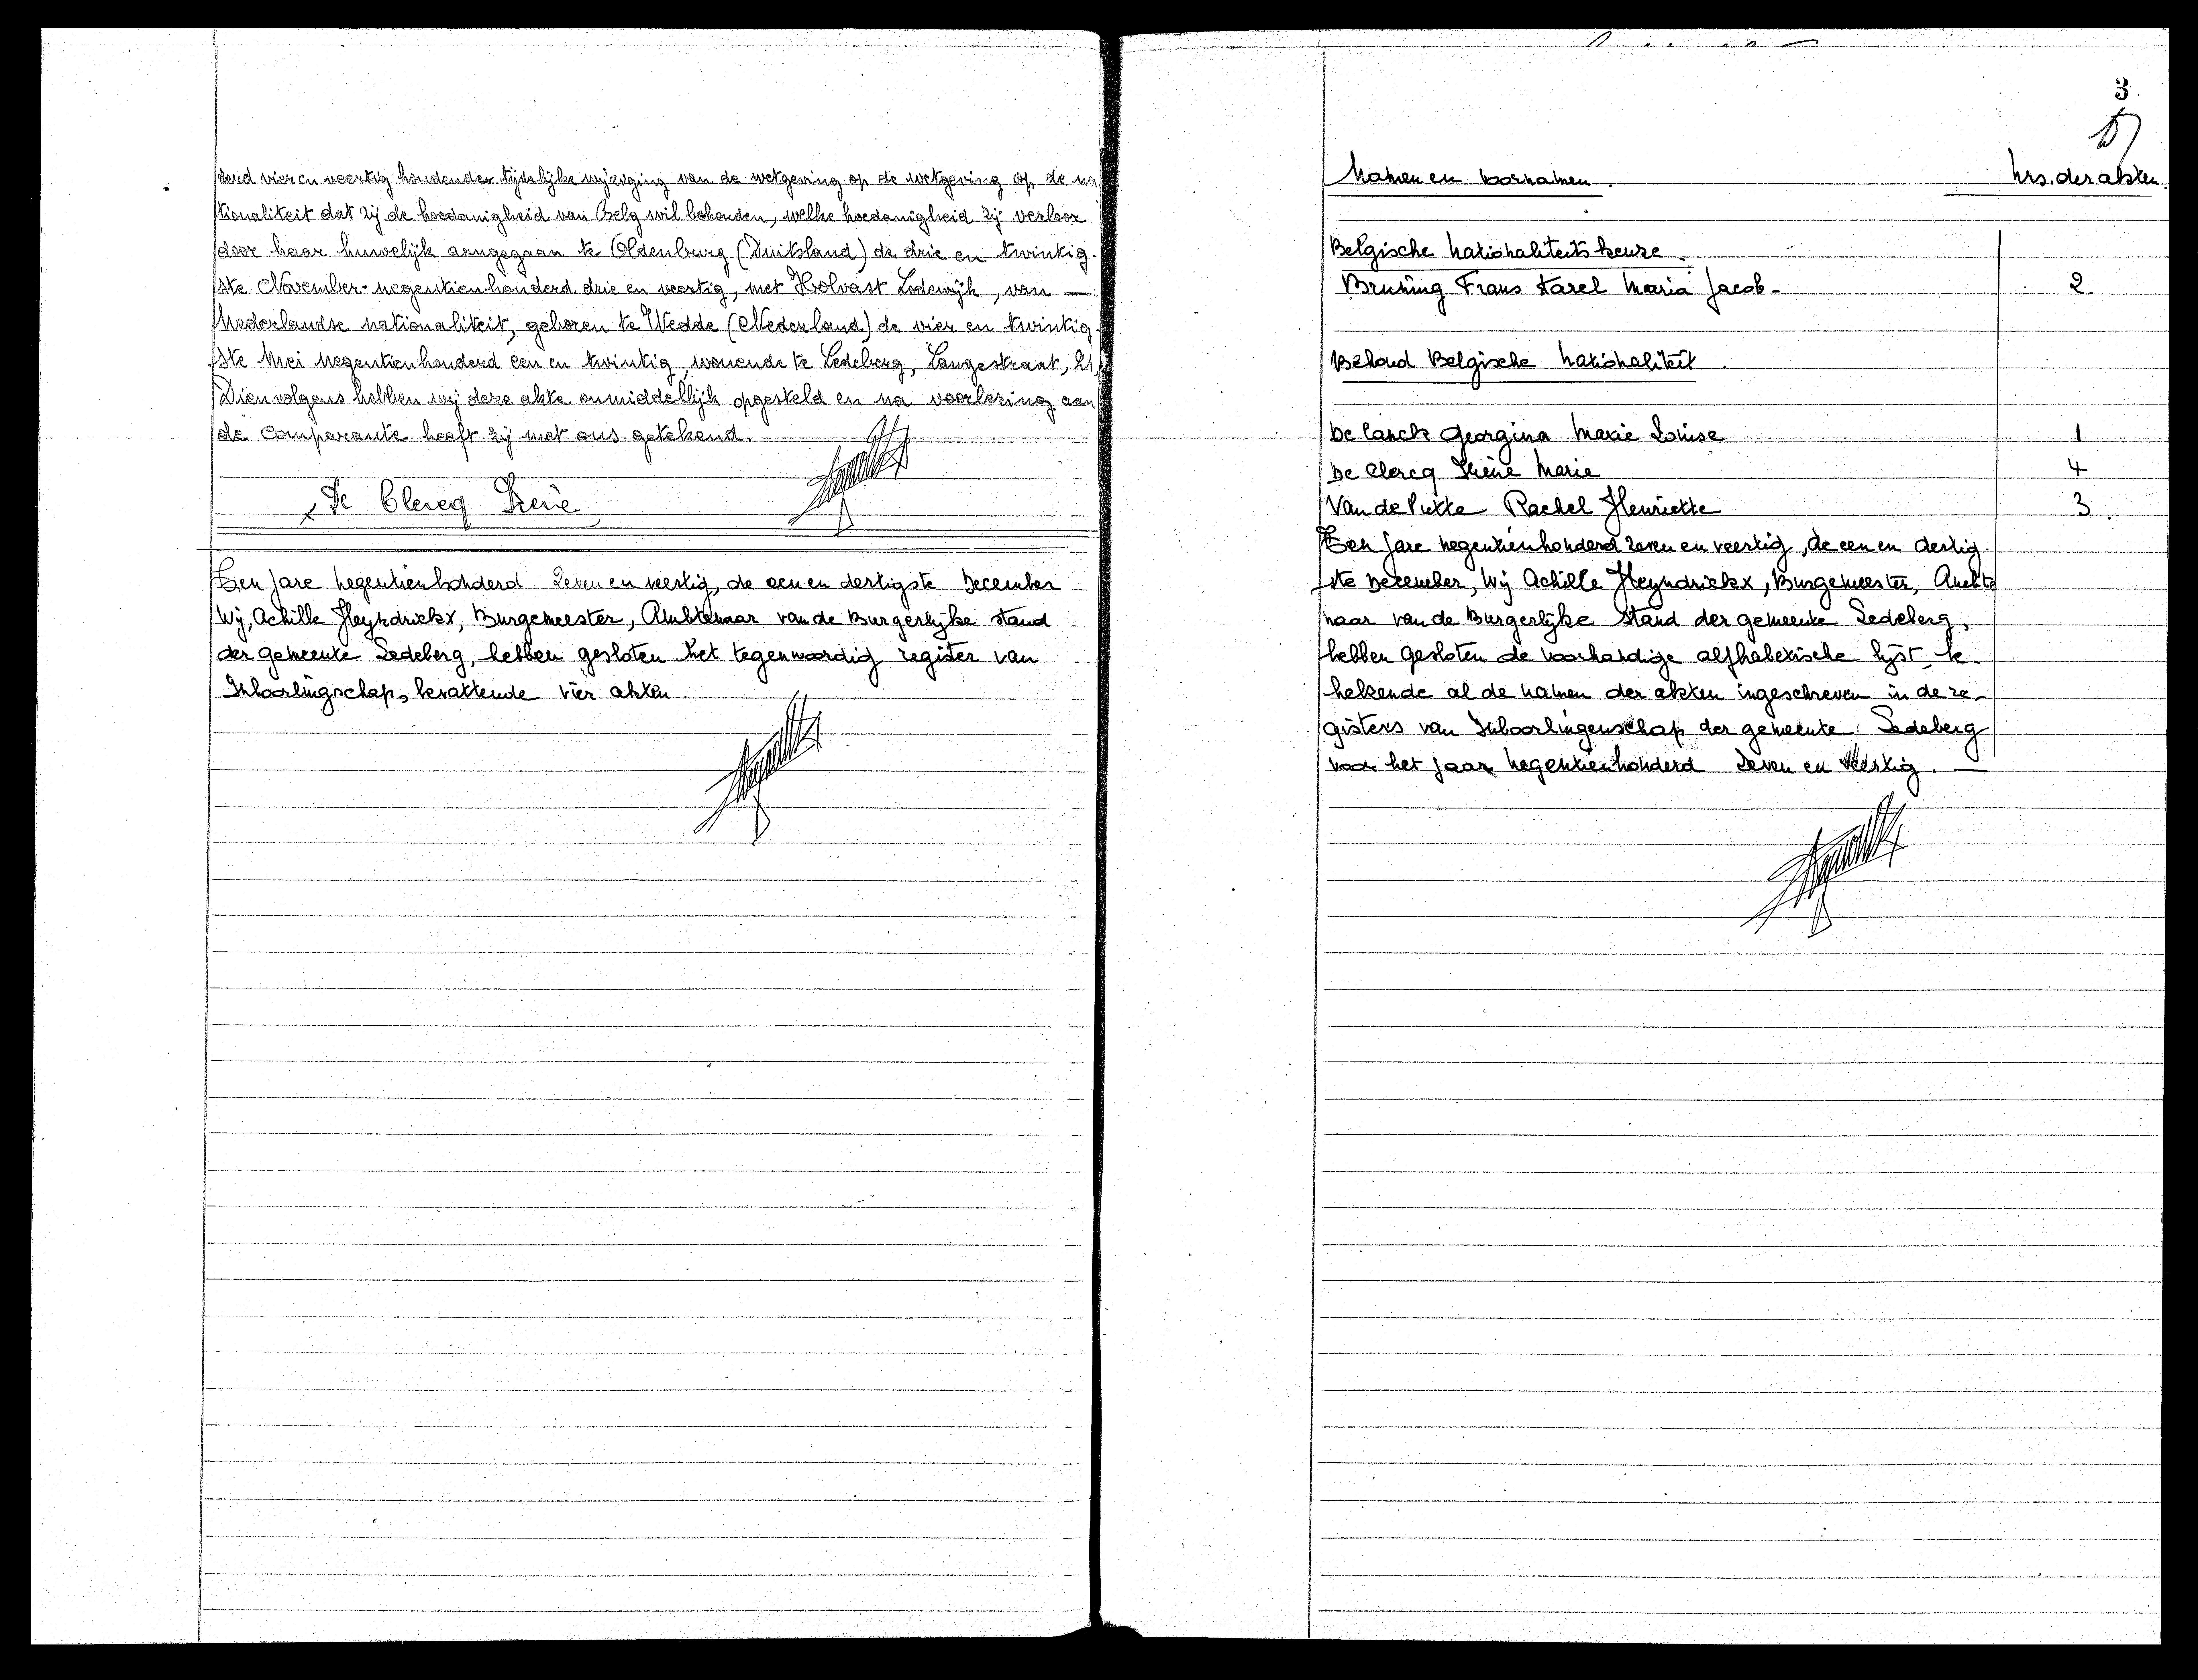 derd vier en veertig houdende tijdelijke wijziging van de wetgeving op de wetgeving op de na
tionaliteit dat zij de hoedanigheid van Belg wil behouden, welke hoedanigheid zij verloor
door haar huwelijk aangegaan te Oldenburg (Duitsland) de drie en twintig-
ste November negentienhonderd drie en veertig, met Holvast Lodewijk, van —
Nederlandse nationaliteit, geboren te Wedde (Nederland) de vier en twintig-
ste Mei negentienhonderd een en twintig, wonende te Ledeberg, Langestraat, 21,
Dienvolgens hebben wij deze akte onmiddellijk opgesteld en na voorlezing aan
de comparante heeft zij met ons getekend.
x De Clercq Irène
Ten jare negentienhonderd zeven en veertig, de een en dertigste December
Wij, Achille Heyndrickx, Burgemeester, Ambtenaar van de Burgerlijke stand
der gemeente Ledeberg, hebben gesloten het tegenwoordig register van
Inboorlingschap, bevattende vier akten
3
Namen en voornamen.
nrs. der akten.
Belgische nationaliteitskeuze.
Bruning Frans Karel Maria Jacob- 2
Behoud Belgische nationaliteit.
De Canck Georgina Marie Louise 1
De Clercq Irène Marie 4
Van de Putte Rachel Henriette 3.
Ten jare negentienhonderd zeven en veertig, de een en dertig-
ste December, Wij Achille Heyndrickx, Burgemeester, Ambte
naar van de Burgerlijke stand der gemeente Ledeberg,
hebben gesloten de voorhandige alfhabetische lijst be-
helzende al de namen der akten ingeschreven in de re-
gisters van Inboorlingenschap der gemeente Ledeberg
voor het jaar negentienhonderd zeven en veertig. —